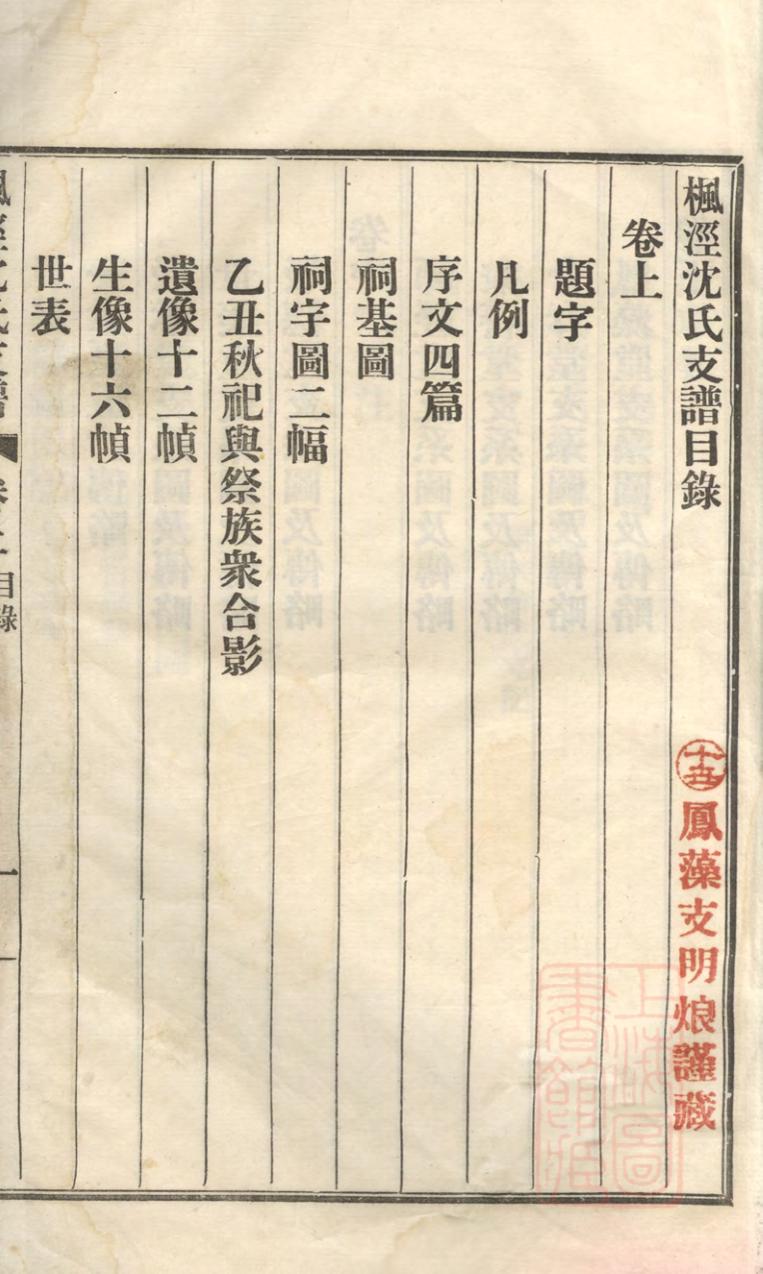 楓涇沈氏支譜目錄
卷上
題字
凡例
序文四篇
祠基圖
祠宇圖二幅
乙丑秋祀與祭族衆合影
遺像十二幀
生像十六幀
世表
楓涇沈氏支譜 卷上目錄 一
十五 鳳藻支明烺謹藏
上海圖書館藏